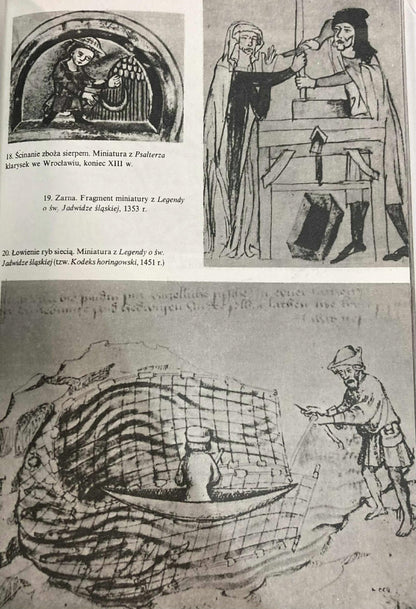 18. Ścinanie zboża sierpem. Miniatura z Psalterza
klarysek we Wrocławiu, koniec XIII w.
19. Żarna. Fragment miniatury z Legendy
o św. Jadwidze śląskiej, 1353 r.
20. Łowienie ryb siecią. Miniatura z Legendy o św.
Jadwidze śląskiej (tzw. Kodeks horingowski, 1451 r.)